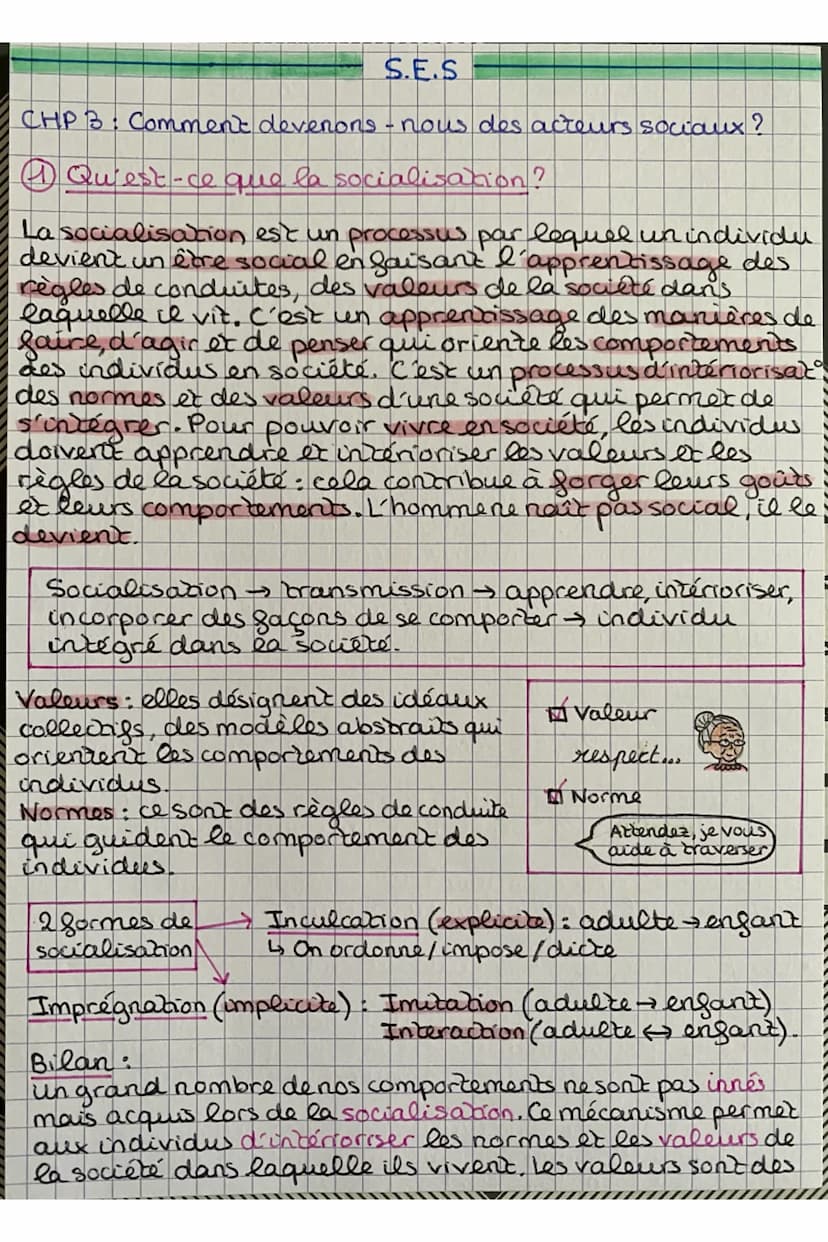 S.E.S
CHP 3 : Comment devenons-nous des acteurs sociaux ?
① Qu'est-ce que la socialisation ?
La socialisation est un processus par lequel un individu
devient un être social en faisant l'apprentissage des
règles de conduites, des valeurs de la société dans
laquelle il vit. C'est un apprentissage des manières de
faire, d'agir et de penser qui oriente les comportements
des individus en société. C'est un processus d'intériorisat°
des normes et des valeurs d'une société qui permet de
s'intégrer. Pour pouvoir vivre en société, les individus
doivent apprendre et intérioriser les valeurs et les
règles de la société : cela contribue à forger leurs goûts
et leurs comportements. L'homme ne naît pas social, il le
devient.
Socialisation → transmission → apprendre, intérioriser,
incorporer des façons de se comporter → individu
intégré dans la société.
Valeurs : elles désignent des idéaux
collectifs, des modèles abstraits qui
orientent les comportements des
individus.
Normes : ce sont des règles de conduite
qui guident le comportement des
individus.
☑ Valeur
respect...
☑ Norme
Attendez, je vous
aide à traverser
2 formes de
socialisation
→ Inculcation (explicite) : adulte → enfant
↳ On ordonne/impose/dicte
Imprégnation (implicite) : Imitation (adulte → enfant)
Interaction (adulte ↔ enfant).
Bilan :
un grand nombre de nos comportements ne sont pas innés
mais acquis lors de la socialisation. Ce mécanisme permet
aux individus d'intérioriser les normes et les valeurs de
la société dans laquelle ils vivent. Les valeurs sont des